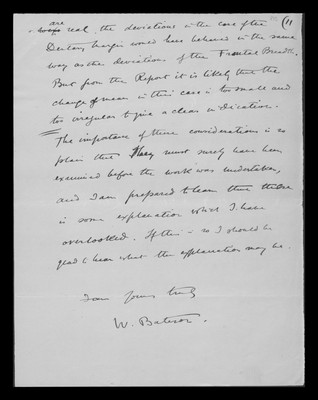 are (11
real, the deviations in the case of the
Dentary margin would have behaved in the same
way as the deviations of the Frontal Breadth.
But from the Report it is likely that the
change of mean in this case is too small and
too irregular to give a clear indication.
The importance of these considerations is so
plain that they must surely have been
examined before the work was undertaken,
and I am prepared to learn that there
is some explanation which I have
overlooked. If this is so I should be
glad to hear what the explanation may be.
I am yours truly
W. Bateson.